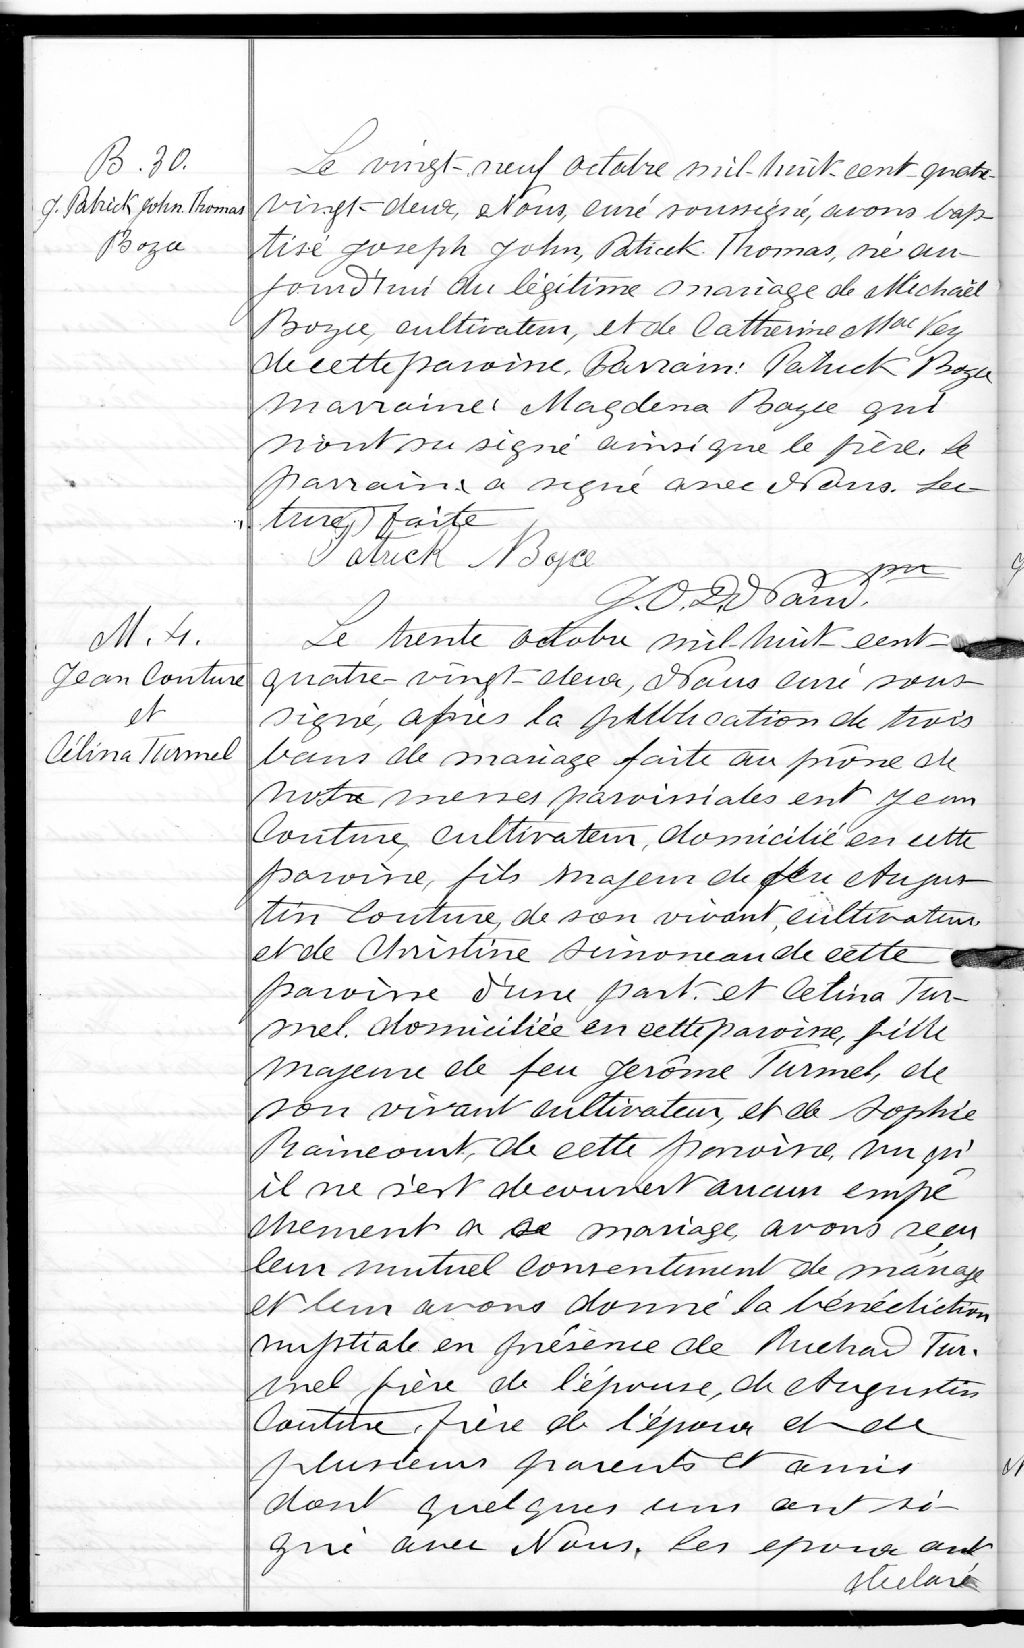 B. 30.
J. Patrick John Thomas
Boyce
Le vingt-neuf octobre mil-huit-cent-quatre-
vingt-deux, Nous, curé soussigné, avons bap-
tisé Joseph John, Patrick Thomas, né au-
jourd'hui du légitime mariage de Michaël
Boyce, cultivateur, et de Catherine Mac Vey
de cette paroisse. Parrain: Patrick Boyce
marraine: Magdena Boyce qui
n'ont su signé ainsi que le père. Le
parrain a signé avec Nous. Lec-
ture faite
Patrick Boyce
ptre
M. 4.
Jean Couture
et
Célina Turmel
Le trente octobre mil-huit-cent-
quatre-vingt-deux, Nous curé sous-
signé, après la publication de trois
bans de mariage faite au prône de
nos messes paroissiales ent Jean
Couture, cultivateur, domicilié en cette
paroisse, fils majeur de feu Augus-
tin Couture, de son vivant, cultivateur
et de Christine Simoneau de cette
paroisse d'une part. et Celina Tur-
mel. domiciliée en cette paroisse, fille
majeure de feu Jerôme Turmel, de
son vivant cultivateur, et de Sophie
Raincourt, de cette paroisse, vu qu'
il ne s'est decouvert aucun empê
chement a ce mariage, avons reçu
leur mutuel consentement de mariage
et leur avons donné la bénédiction
nuptiale en présence de Richard Tur-
mel frère de l'épouse, de Augustin
Couture, frère de l'époux et de
plusieurs parents et amis
dont quelques uns ont si-
gné avec Nous. Les epoux ont
declaré